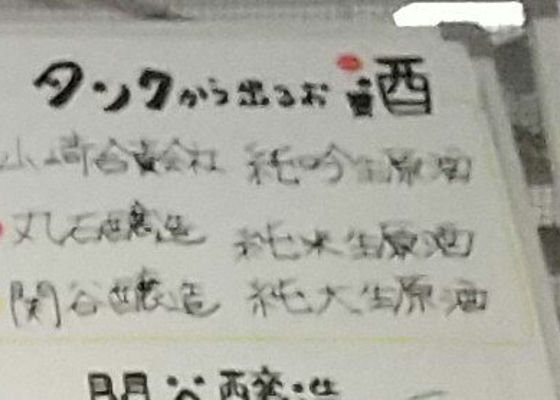 タンクから出るお酒
山崎合資会社 純吟生原酒
丸石醸造 純米生原酒
関谷醸造 純大生原酒
関谷醸造